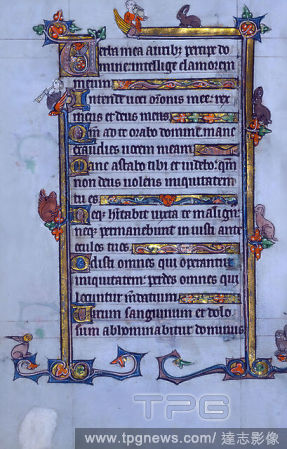 Verba mea auribꝫ percipe do
mine intellige clamorem
meum
Intende uoci orōnis mee rex
meus et deus meus
Qm̄ ad te orabo domine mane
exaudies uocem meam
Mane astabo tibi et uidebo qm̄
non deus uolens iniquitatem
tu es
Neqꝫ hītabit iuxta te malign
neqꝫ permanebunt iniusti ante
oculos tuos
Odisti omnes qui operantur
iniquitatem perdes omnes qui
locuntur mēdatium
Uirum sanguinum et dolo
sum abhominabitur dominus
TPG
www.tpgnews.com/ 達志影像